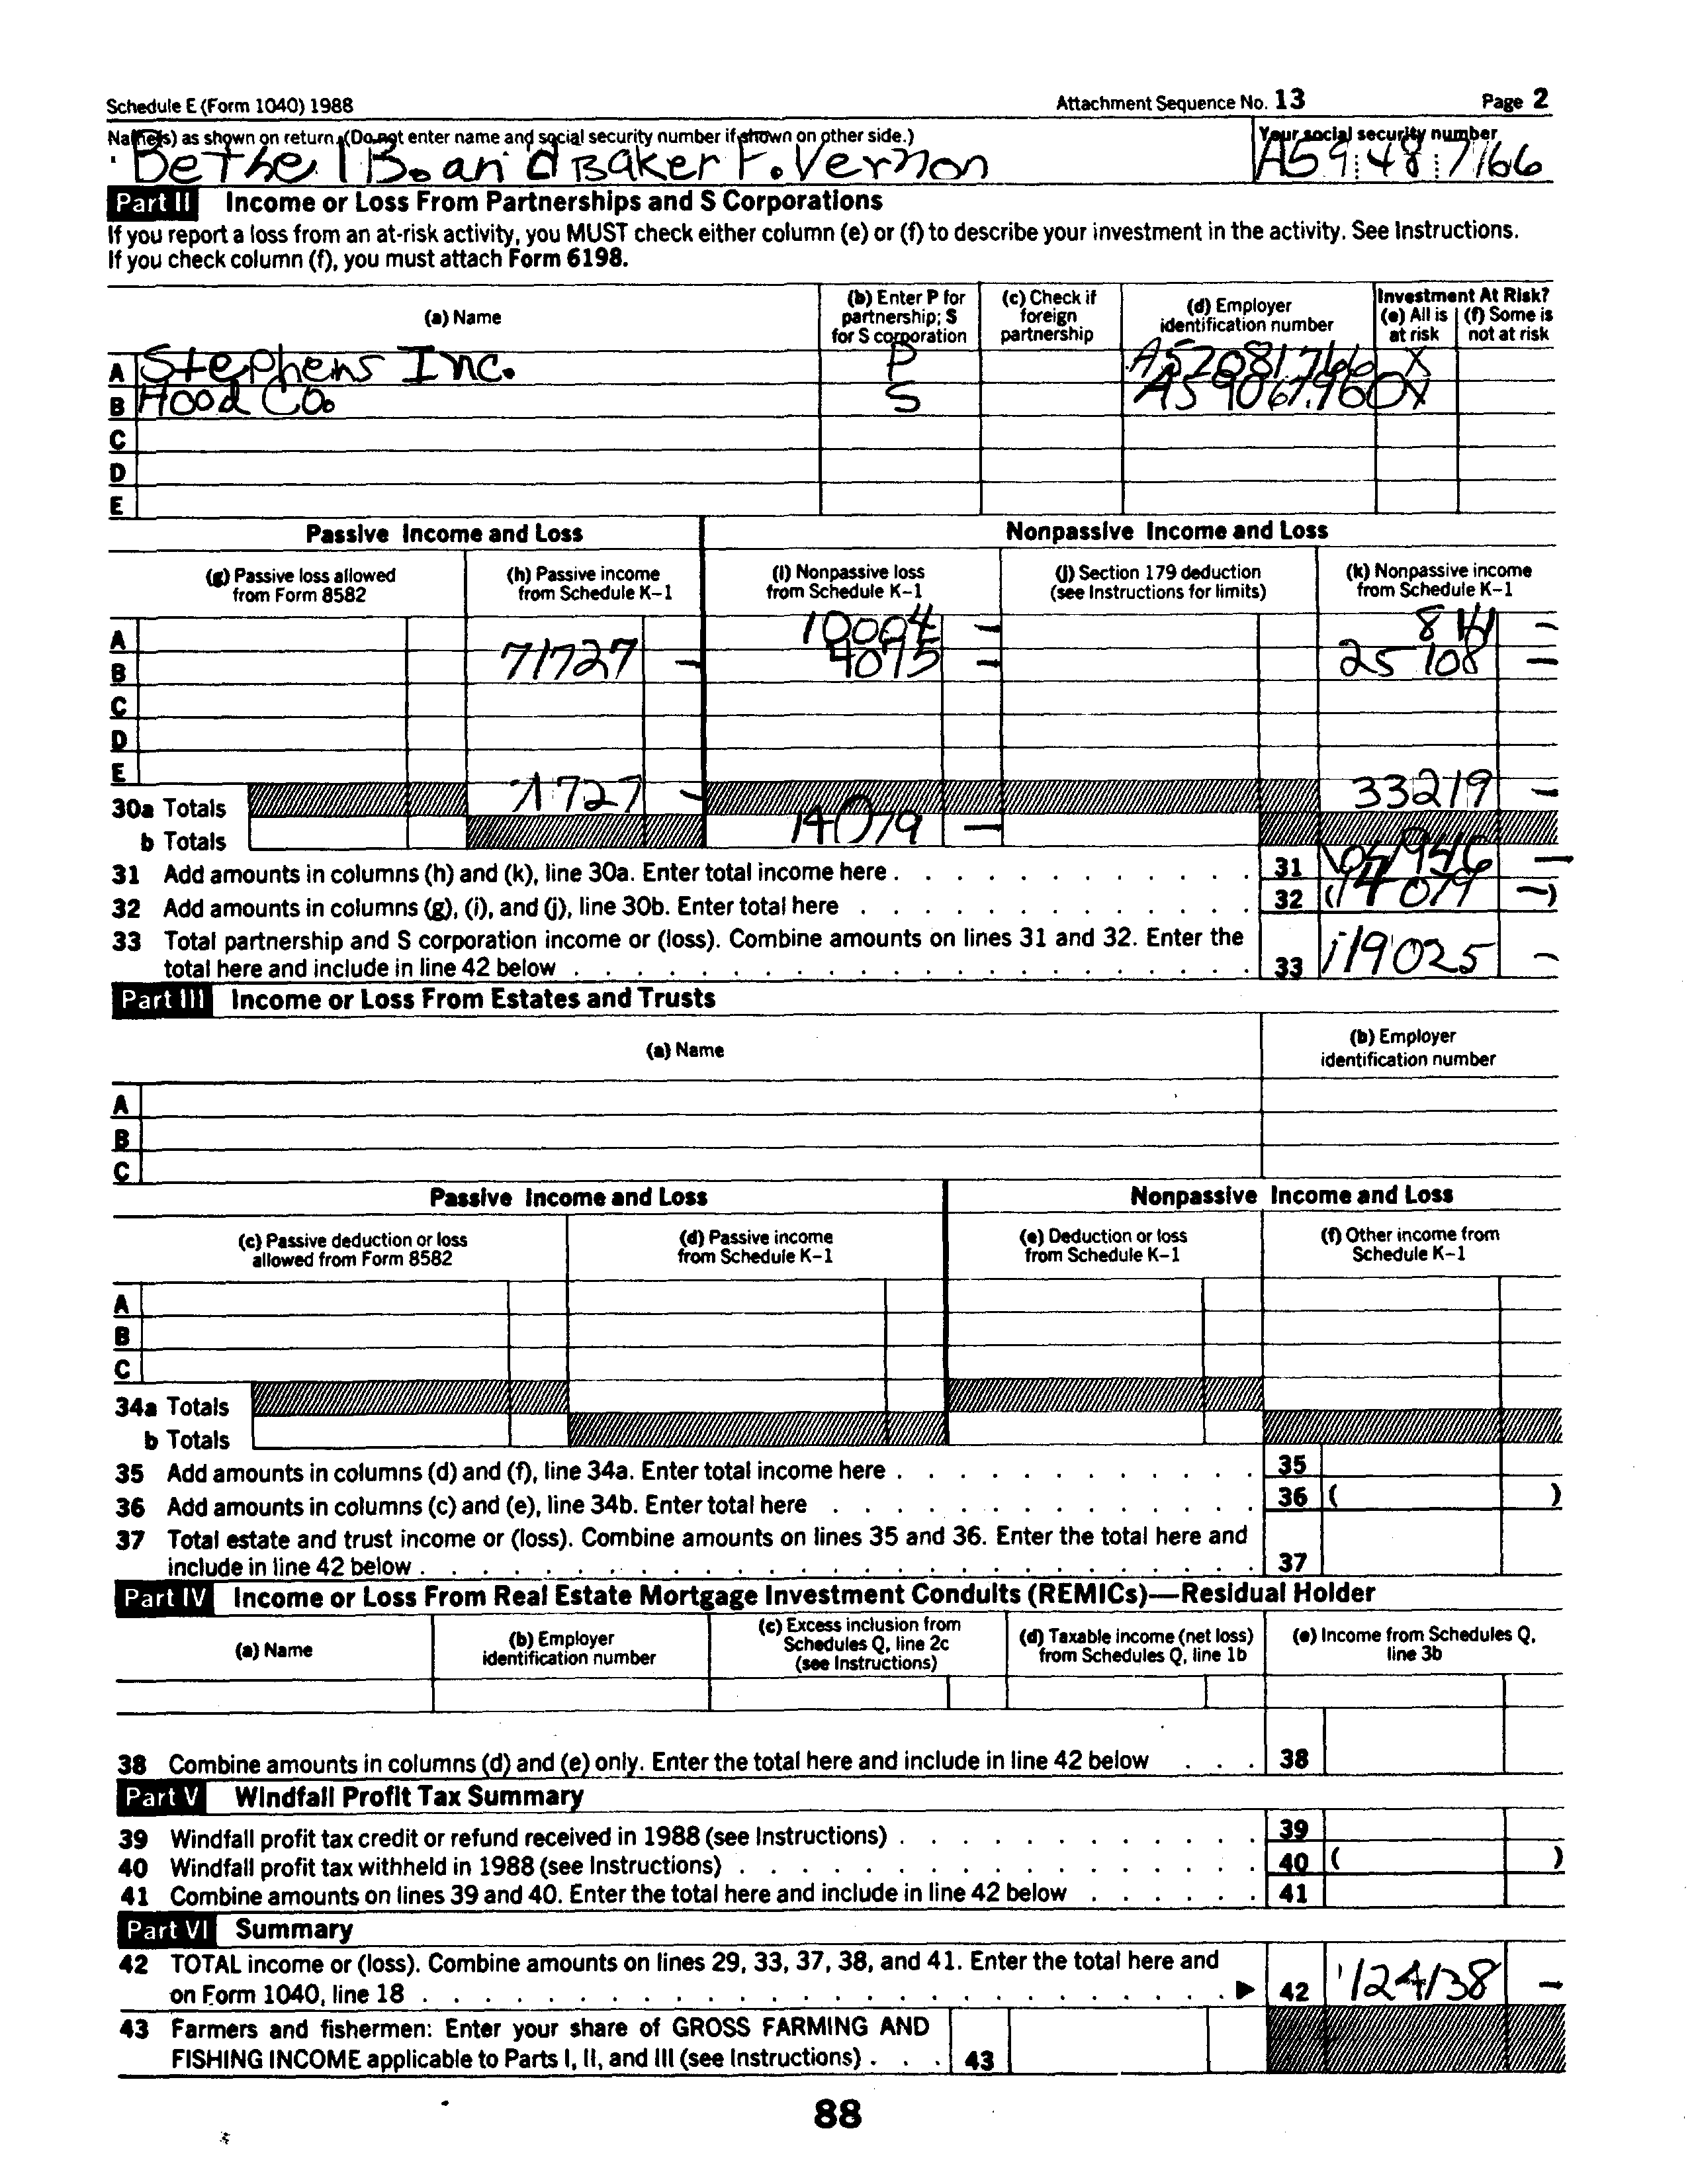 Schedule E (Form 1040) 1988 Attachment Sequence No. 13 Page 2
Name(s) as shown on return. (Do not enter name and social security number if shown on other side.) Your social security number
Bethel B. and Baker F. Vernon A59 48 7166
Part II Income or Loss From Partnerships and S Corporations
If you report a loss from an at-risk activity, you MUST check either column (e) or (f) to describe your investment in the activity. See Instructions.
If you check column (f), you must attach Form 6198.
(a) Name
(b) Enter P for partnership; S for S corporation
(c) Check if foreign partnership
(d) Employer identification number
Investment At Risk?
(e) All is at risk
(f) Some is not at risk
A Stephens Inc. P A52081766 X
B Hood Co. S A59067960 X
C
D
E
Passive Income and Loss Nonpassive Income and Loss
(g) Passive loss allowed from Form 8582
(h) Passive income from Schedule K-1
(i) Nonpassive loss from Schedule K-1
(j) Section 179 deduction (see Instructions for limits)
(k) Nonpassive income from Schedule K-1
A 10004 — 8 111 —
B 71727 — 4075 — 25 108 —
C
D
E
30a Totals 71727 — 33219 —
b Totals 14079 —
31 Add amounts in columns (h) and (k), line 30a. Enter total income here . 31 104946 —
32 Add amounts in columns (g), (i), and (j), line 30b. Enter total here 32 (14 079 —)
33 Total partnership and S corporation income or (loss). Combine amounts on lines 31 and 32. Enter the
total here and include in line 42 below 33 119025 —
Part III Income or Loss From Estates and Trusts
(a) Name
(b) Employer identification number
A
B
C
Passive Income and Loss Nonpassive Income and Loss
(c) Passive deduction or loss allowed from Form 8582
(d) Passive income from Schedule K-1
(e) Deduction or loss from Schedule K-1
(f) Other income from Schedule K-1
A
B
C
34a Totals
b Totals
35 Add amounts in columns (d) and (f), line 34a. Enter total income here . 35
36 Add amounts in columns (c) and (e), line 34b. Enter total here 36 ( )
37 Total estate and trust income or (loss). Combine amounts on lines 35 and 36. Enter the total here and
include in line 42 below . 37
Part IV Income or Loss From Real Estate Mortgage Investment Conduits (REMICs)—Residual Holder
(a) Name
(b) Employer identification number
(c) Excess inclusion from Schedules Q, line 2c (see Instructions)
(d) Taxable income (net loss) from Schedules Q, line 1b
(e) Income from Schedules Q, line 3b
38 Combine amounts in columns (d) and (e) only. Enter the total here and include in line 42 below 38
Part V Windfall Profit Tax Summary
39 Windfall profit tax credit or refund received in 1988 (see Instructions) . 39
40 Windfall profit tax withheld in 1988 (see Instructions) 40 ( )
41 Combine amounts on lines 39 and 40. Enter the total here and include in line 42 below 41
Part VI Summary
42 TOTAL income or (loss). Combine amounts on lines 29, 33, 37, 38, and 41. Enter the total here and
on Form 1040, line 18 ▶ 42 124138 —
43 Farmers and fishermen: Enter your share of GROSS FARMING AND
FISHING INCOME applicable to Parts I, II, and III (see Instructions) . 43
88